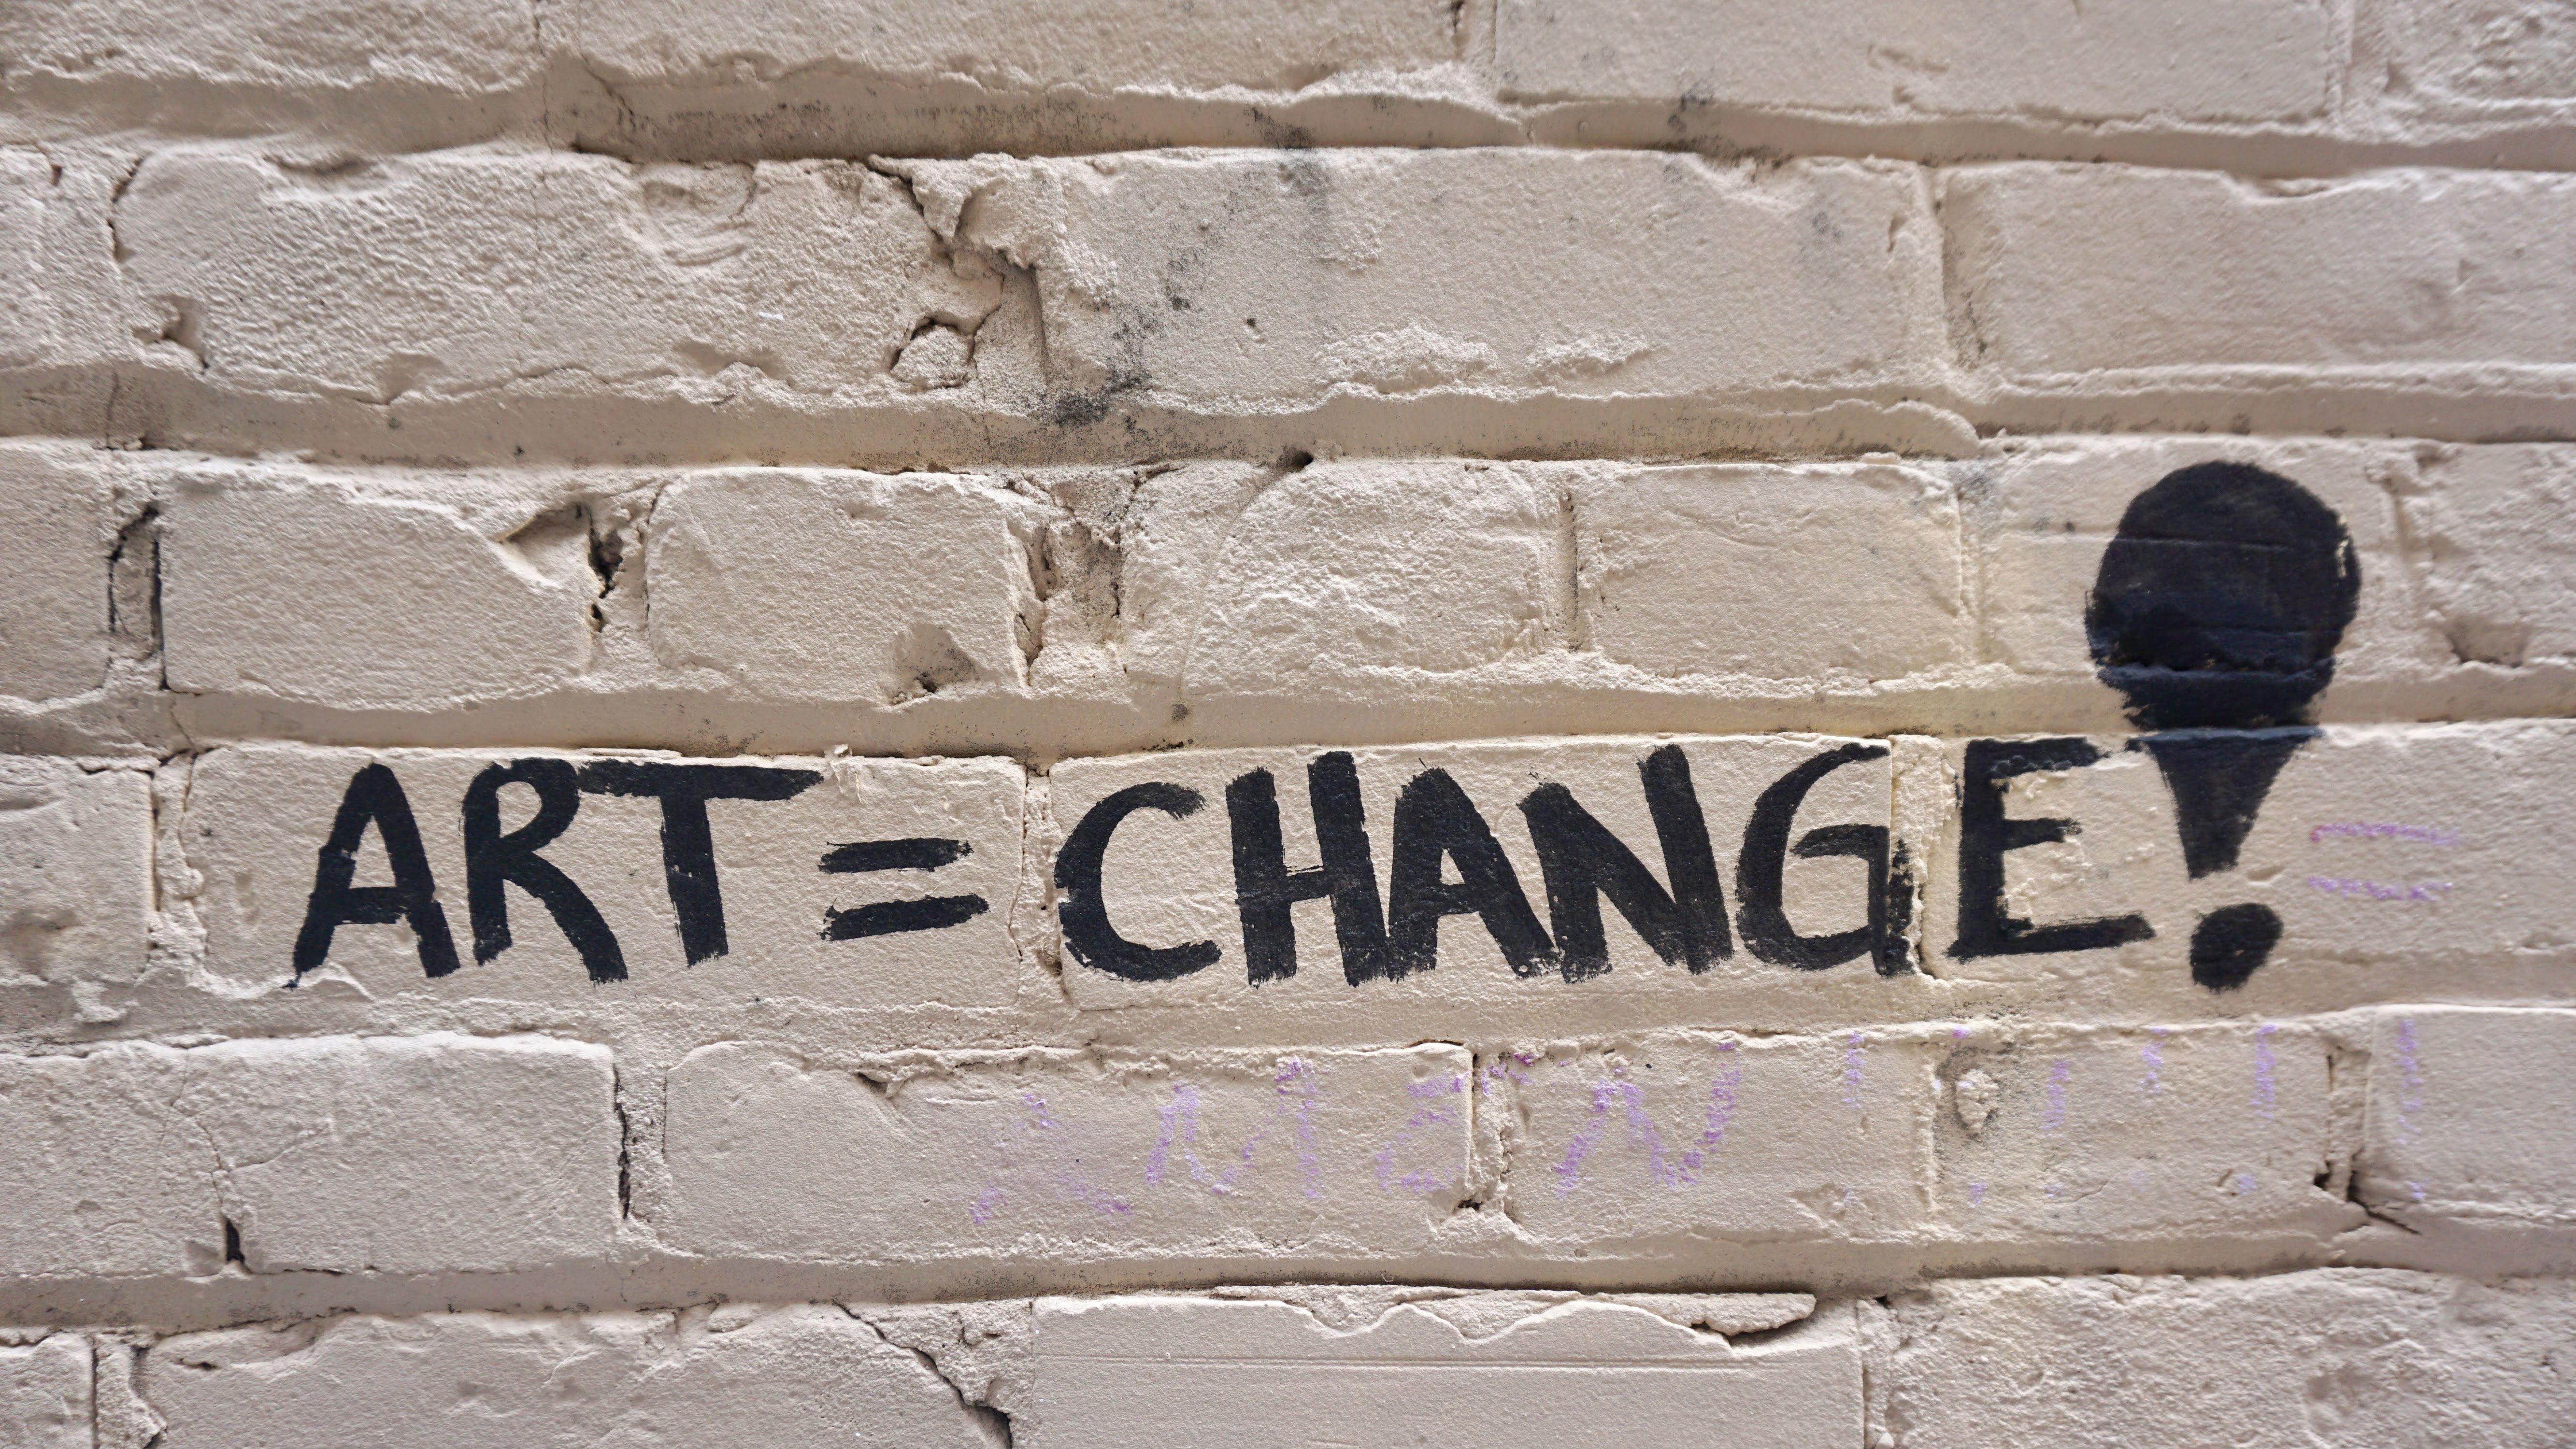 ART = CHANGE!
=
AMEN!!!!!